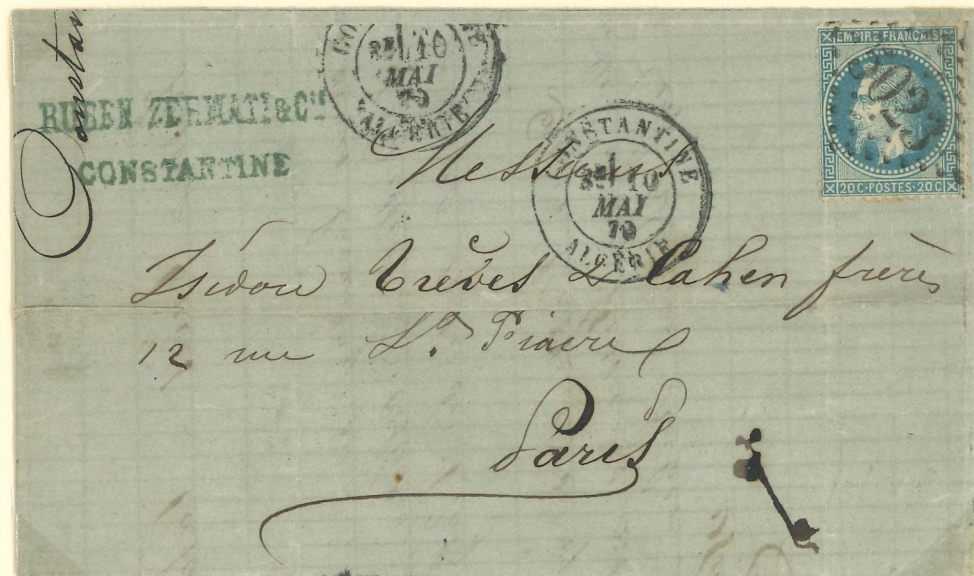 Constan
RUBEN ZERMATI & Cie
CONSTANTINE
10
MAI
70
ALGÉRIE
CONSTANTINE
10
MAI
70
ALGÉRIE
EMPIRE FRANÇAIS
20 C · POSTES · 20 C
Messieurs
Isidore Trèves & Cahen frères
12 rue St. Fiacre
Paris